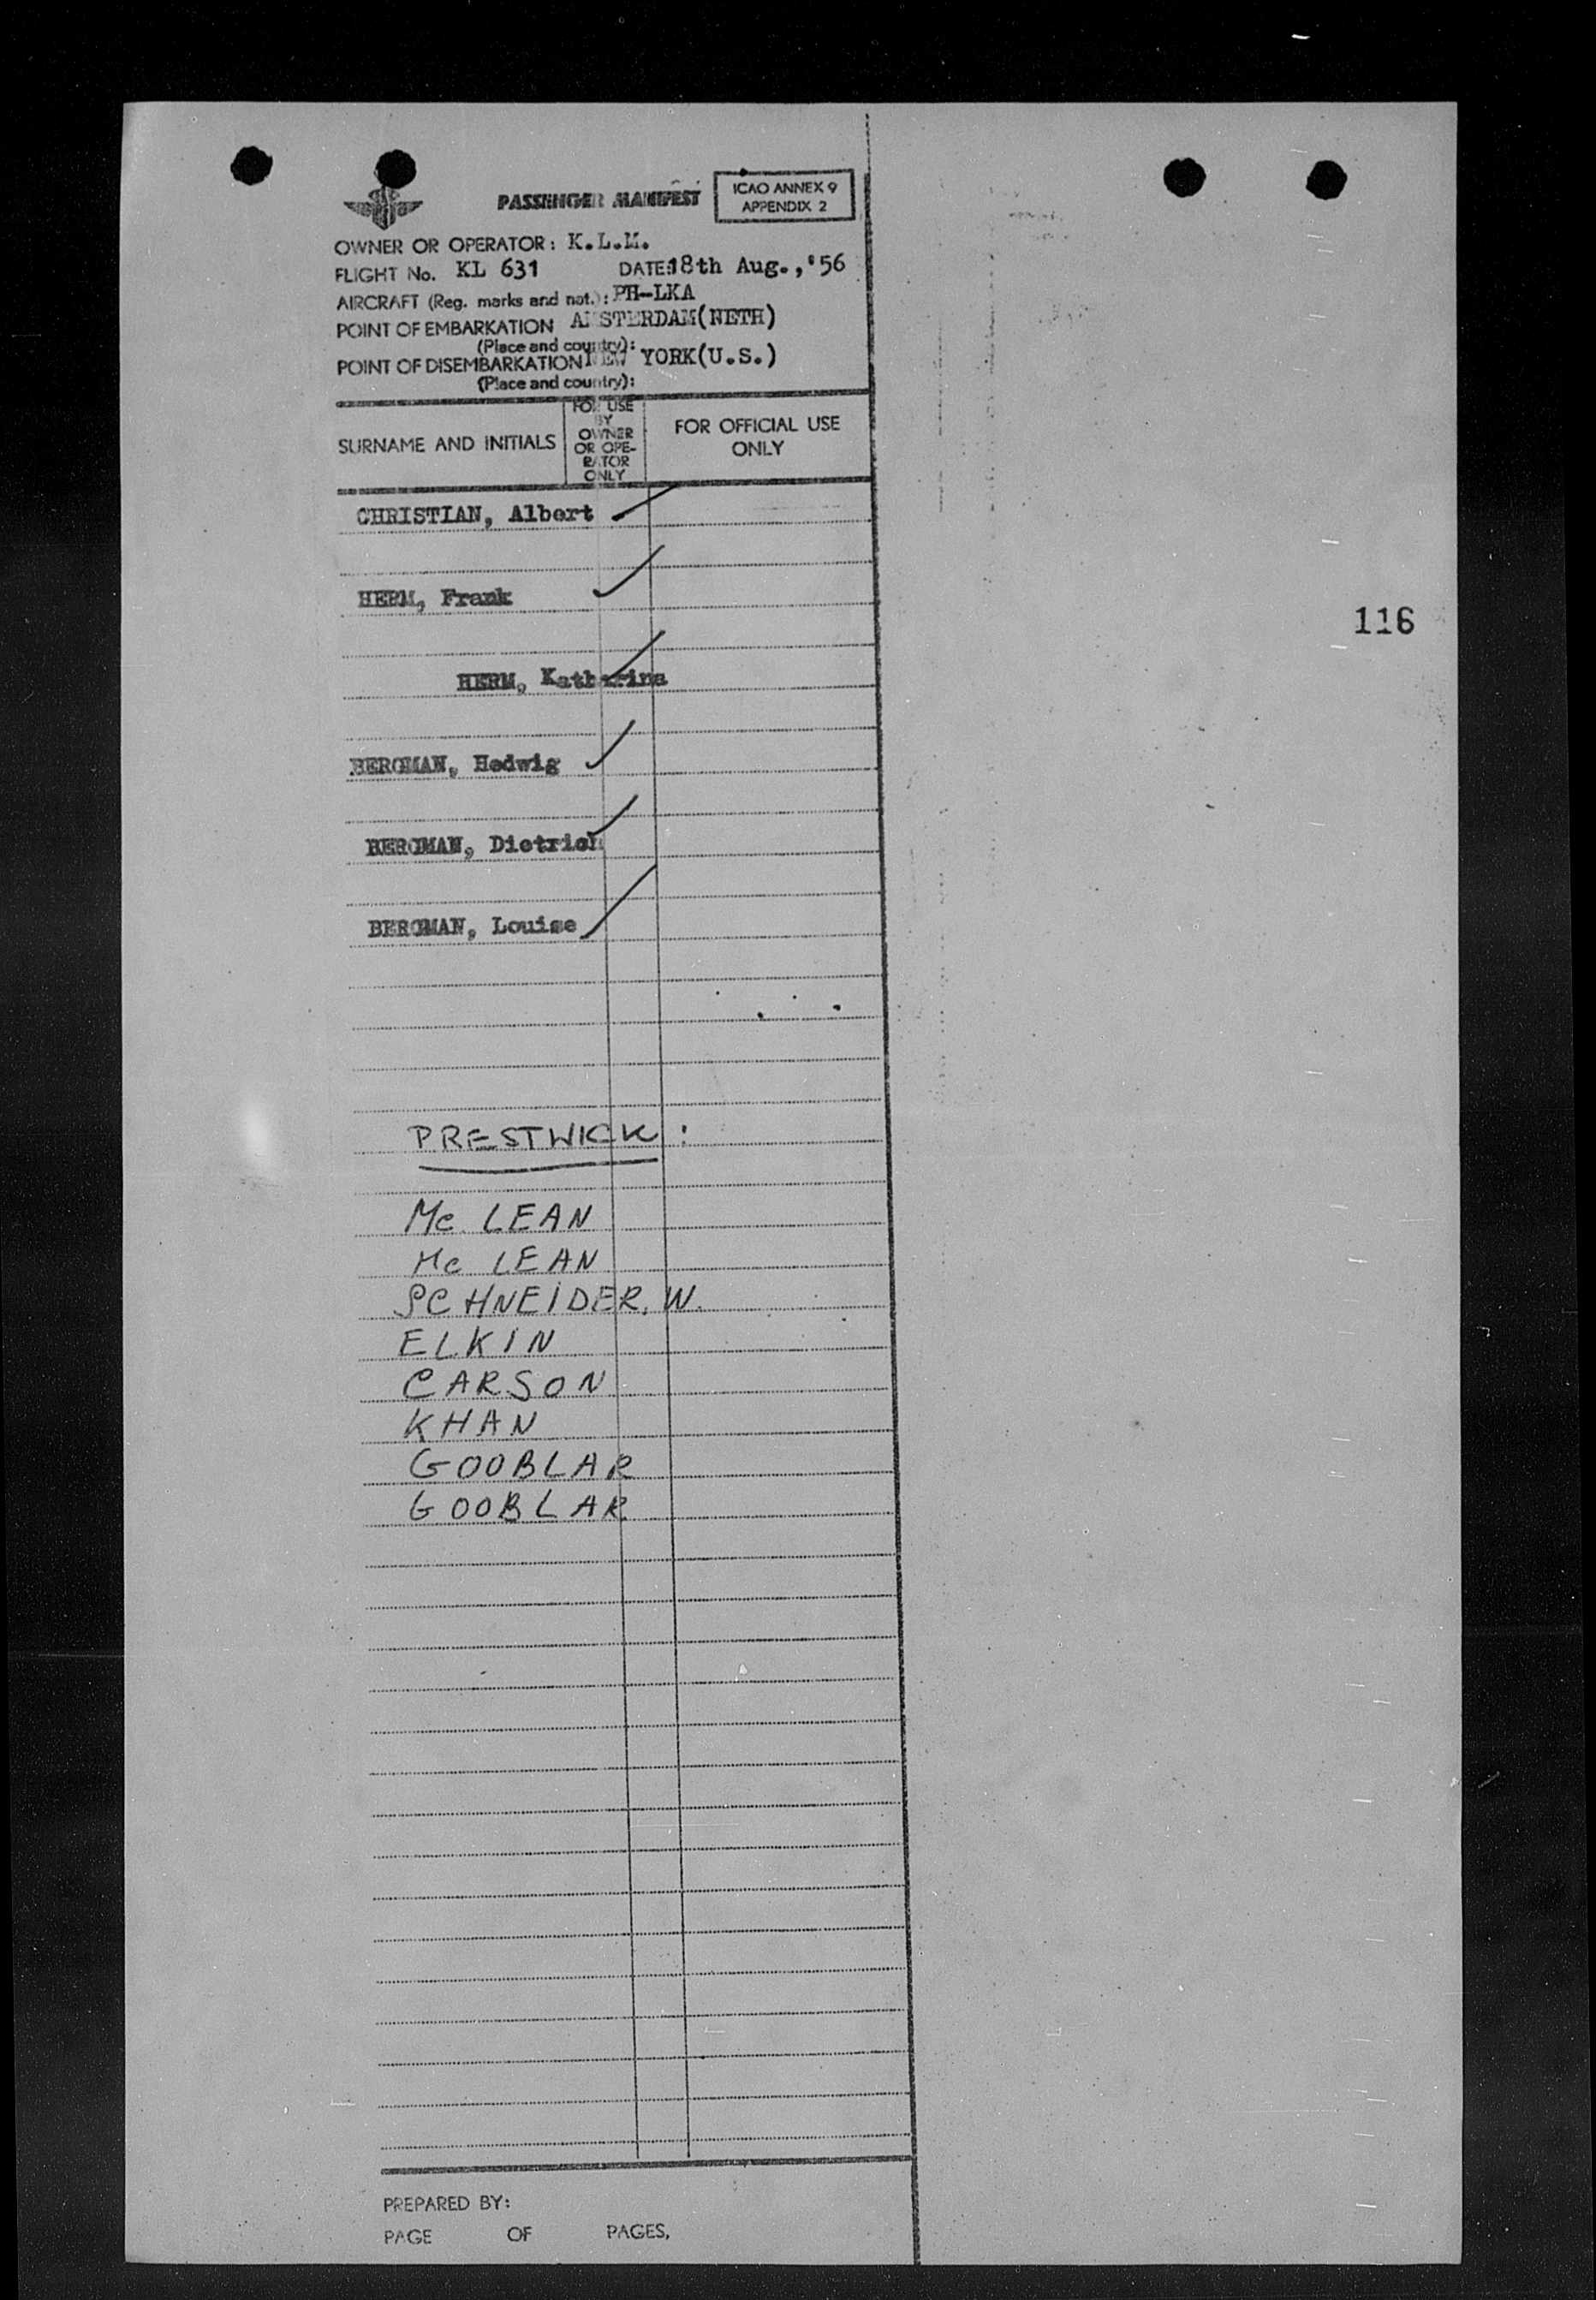 PASSENGER MANIFEST
ICAO ANNEX 9
APPENDIX 2
OWNER OR OPERATOR: K.L.M.
FLIGHT No. KL 631 DATE: 18th Aug.,'56
AIRCRAFT (Reg. marks and nat.): PH-LKA
POINT OF EMBARKATION AMSTERDAM(NETH)
(Place and country):
POINT OF DISEMBARKATION NEW YORK(U.S.)
(Place and country):
SURNAME AND INITIALS
FOR USE
BY
OWNER
OR OPE-
RATOR
ONLY
FOR OFFICIAL USE
ONLY
CHRISTIAN, Albert
HERM, Frank
116
HERM, Katharina
BERGMAN, Hedwig
BERGMAN, Dietrich
BERGMAN, Louise
PRESTWICK :
Mc LEAN
Mc LEAN
SCHNEIDER. W.
ELKIN
CARSON
KHAN
GOOBLAR
GOOBLAR
PREPARED BY:
PAGE OF PAGES.